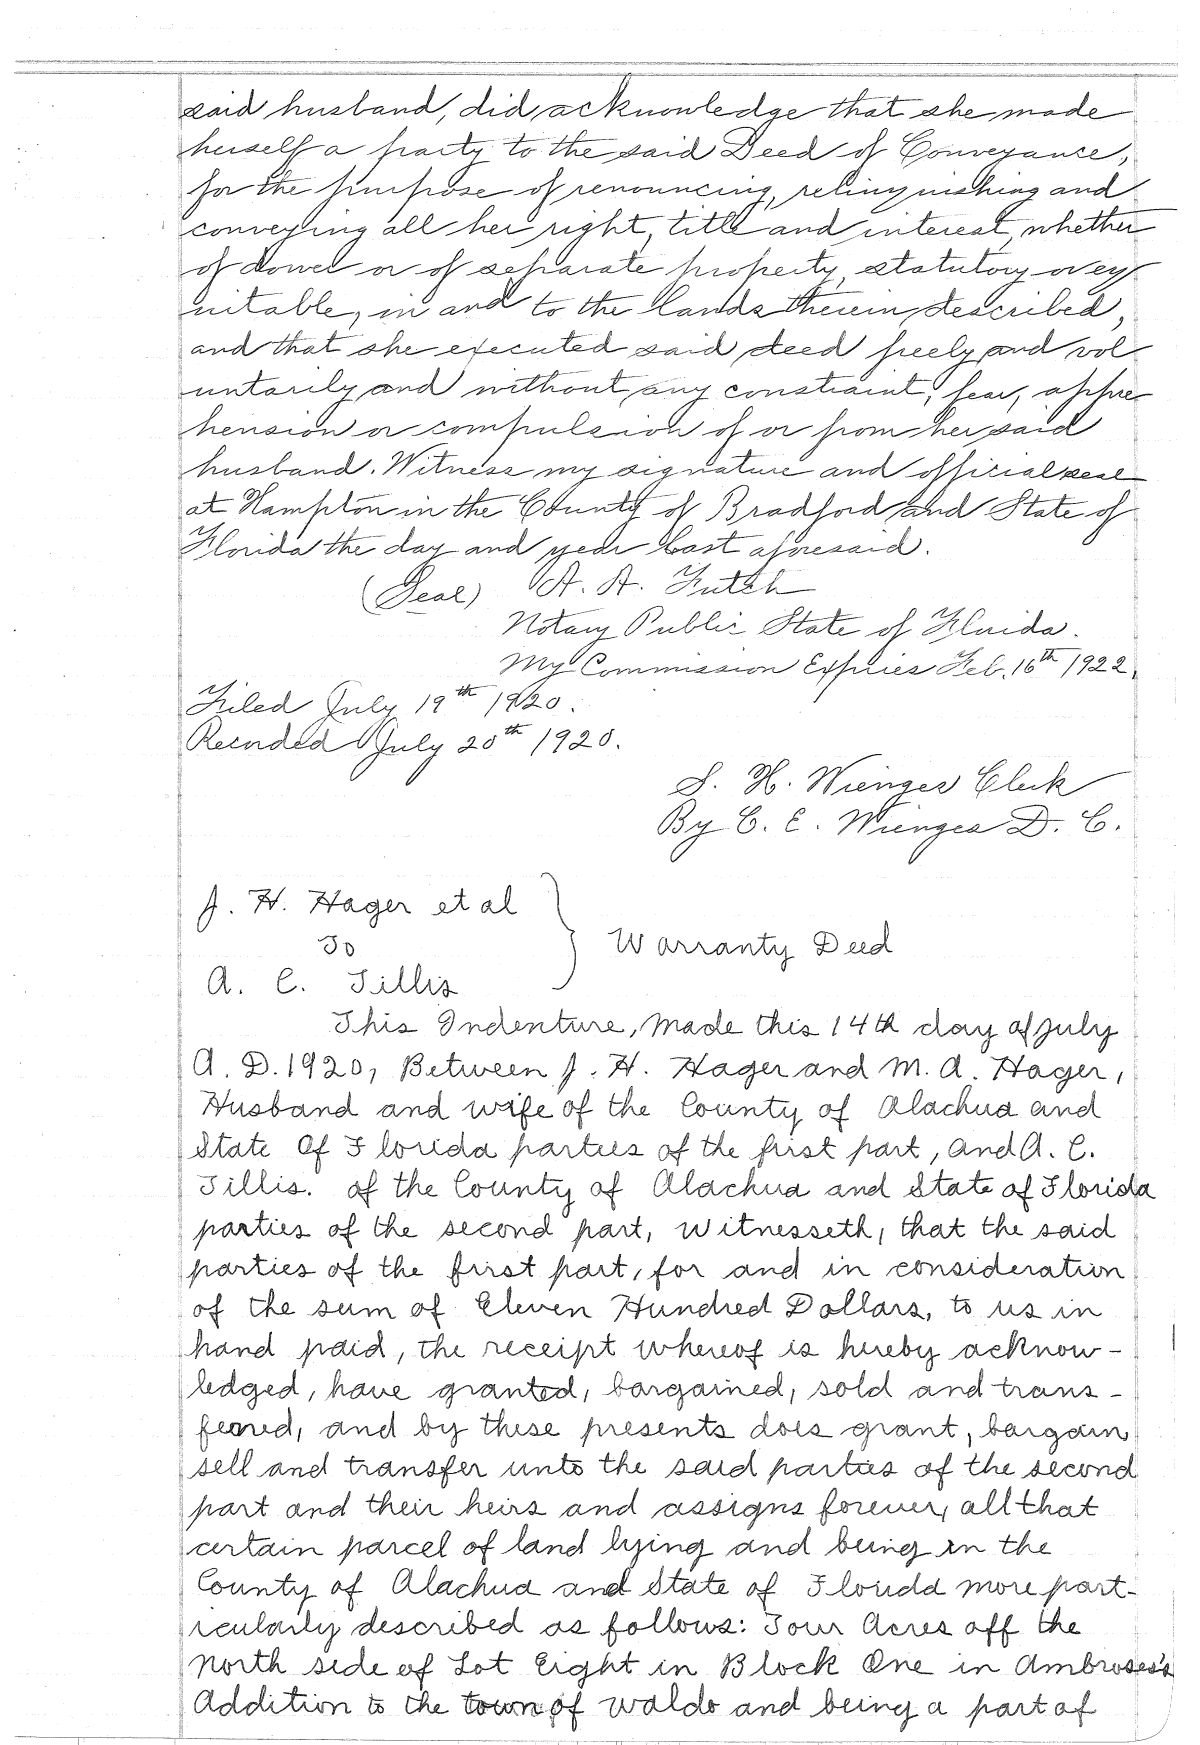 said husband, did acknowledge that she made
herself a party to the said Deed of Conveyance,
for the purpose of renouncing, relinquishing and
conveying all her right, title and interest, whether
of dower or of separate property, statutory or eq
uitable, in and to the lands therein described,
and that she executed said deed freely and vol
untarily and without any constraint, fear, appre
hension or compulsion of or from her said
husband. Witness my signature and official seal
at Hampton in the County of Bradford and State of
Florida the day and year last aforesaid.
(Seal) A. A. Futch
Notary Public State of Florida.
My Commission Expires Feb. 16th 1922.
Filed July 19th 1920.
Recorded July 20th 1920.
S. H. Wienges Clerk
By C. E. Wienges D. C.
J. H. Hager et al
To
Warranty Deed
A. C. Tillis
This Indenture, Made this 14th day of July
A. D. 1920, Between J. H. Hager and M. A. Hager,
Husband and wife of the County of Alachua and
State Of Florida parties of the first part, and A. C.
Tillis. of the County of Alachua and State of Florida
parties of the second part, witnesseth, that the said
parties of the first part, for and in consideration
of the sum of Eleven Hundred Dollars, to us in
hand paid, the receipt whereof is hereby acknow-
ledged, have granted, bargained, sold and trans-
ferred, and by these presents does grant, bargain
sell and transfer unto the said parties of the second
part and their heirs and assigns forever, all that
certain parcel of land lying and being in the
County of Alachua and State of Florida more part-
icularly described as follows: Four Acres off the
North side of Lot Eight in Block One in Ambroses's
Addition to the town of Waldo and being a part of